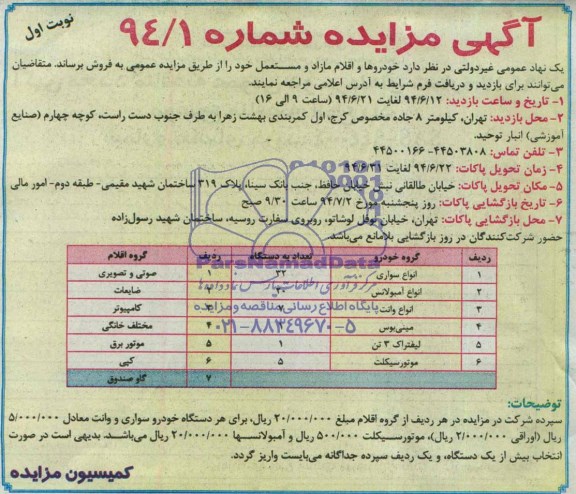 نوبت اول
آگهی مزایده شماره ۹۴/۱
یک نهاد عمومی غیردولتی در نظر دارد خودروها و اقلام مازاد و مستعمل خود را از طریق مزایده عمومی به فروش برساند. متقاضیان
می‌توانند برای بازدید و دریافت فرم شرایط به آدرس اعلامی مراجعه نمایند.
۱- تاریخ و ساعت بازدید: ۹۴/۶/۱۲ لغایت ۹۴/۶/۲۱ (ساعت ۹ الی ۱۶)
۲- محل بازدید: تهران، کیلومتر ۸ جاده مخصوص کرج، اول کمربندی بهشت زهرا به طرف جنوب دست راست، کوچه چهارم (صنایع
آموزشی) انبار توحید.
۳- تلفن تماس: ۴۴۵۰۳۸۰۸- ۴۴۵۰۰۱۶۶
۴- زمان تحویل پاکات: ۹۴/۶/۲۲ لغایت
۵- مکان تحویل پاکات: خیابان طالقانی نبش خیابان حافظ، جنب بانک سینا، پلاک ۳۱۹ ساختمان شهید مقیمی- طبقه دوم- امور مالی
۶- تاریخ بازگشایی پاکات: روز پنجشنبه مورخ ۹۴/۷/۲ ساعت ۹/۳۰ صبح
۷- محل بازگشایی پاکات: تهران، خیابان نوفل لوشاتو، روبروی سفارت روسیه، ساختمان شهید رسول‌زاده
حضور شرکت‌کنندگان در روز بازگشایی بلامانع می‌باشد.
ردیف گروه خودرو تعداد به دستگاه ردیف گروه اقلام
۱ انواع سواری ۳۲ ۱ صوتی و تصویری
۲ انواع آمبولانس ضایعات
۳ انواع وانت ۷ کامپیوتر
۴ مینی‌بوس ۴ مختلف خانگی
۵ لیفتراک ۳ تن ۱ ۵ موتور برق
۶ موتورسیکلت ۵ ۶ کپی
۷ گاو صندوق
ParsNamadData
مرکز فرآوری اطلاعات پارس نماد داده‌ها
پایگاه اطلاع رسانی مناقصه و مزایده
۰۲۱-۸۸۳۴۹۶۷۰-۵
توضیحات:
سپرده شرکت در مزایده در هر ردیف از گروه اقلام مبلغ ۲۰/۰۰۰/۰۰۰ ریال، برای هر دستگاه خودرو سواری و وانت معادل ۵/۰۰۰/۰۰۰
ریال (اوراقی ۲/۰۰۰/۰۰۰ ریال)، موتورسیکلت ۵۰۰/۰۰۰ ریال و آمبولانسها ۲۰/۰۰۰/۰۰۰ ریال می‌باشد. بدیهی است در صورت
انتخاب بیش از یک دستگاه، و یک ردیف سپرده جداگانه می‌بایست واریز گردد.
کمیسیون مزایده